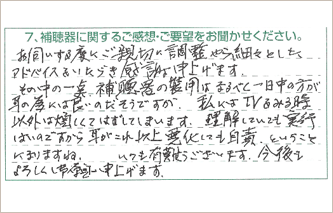 7、補聴器に関するご感想・ご要望をお聞かせください。
お伺いする度にご親切に調整やら細々とした
アドバイスをいただき感謝申し上げます。
その中の一番、補聴器の装用はなるべく一日中の方が
耳の為には良いのだそうですが、私にはTVをみる時
以外は煩しくてはずしてしまいます。理解していても実行
はいのですから耳がこれ以上悪化しても自責、ということ
になりますね。 いつも有難うございます。今後も
よろしくお願い申し上げます。